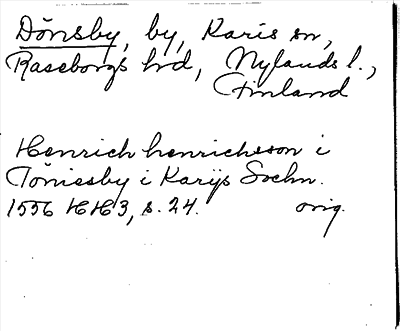 Dönsby, by, Karis sn,
Raseborgs hrd, Nylands l.,
Finland
Henrich henrichsson i
Tönissby i Karijs Sochn.
1556 HH3, s. 24. orig.